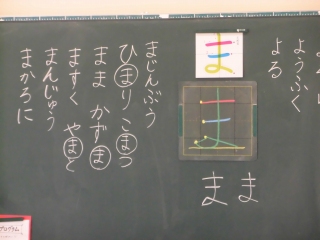 ようふく
よる
ま
ま
ま ま
まじんぶう
ひまり こまつ
まま かずま
ますく やまと
まんじゅう
まかろに
プログラム